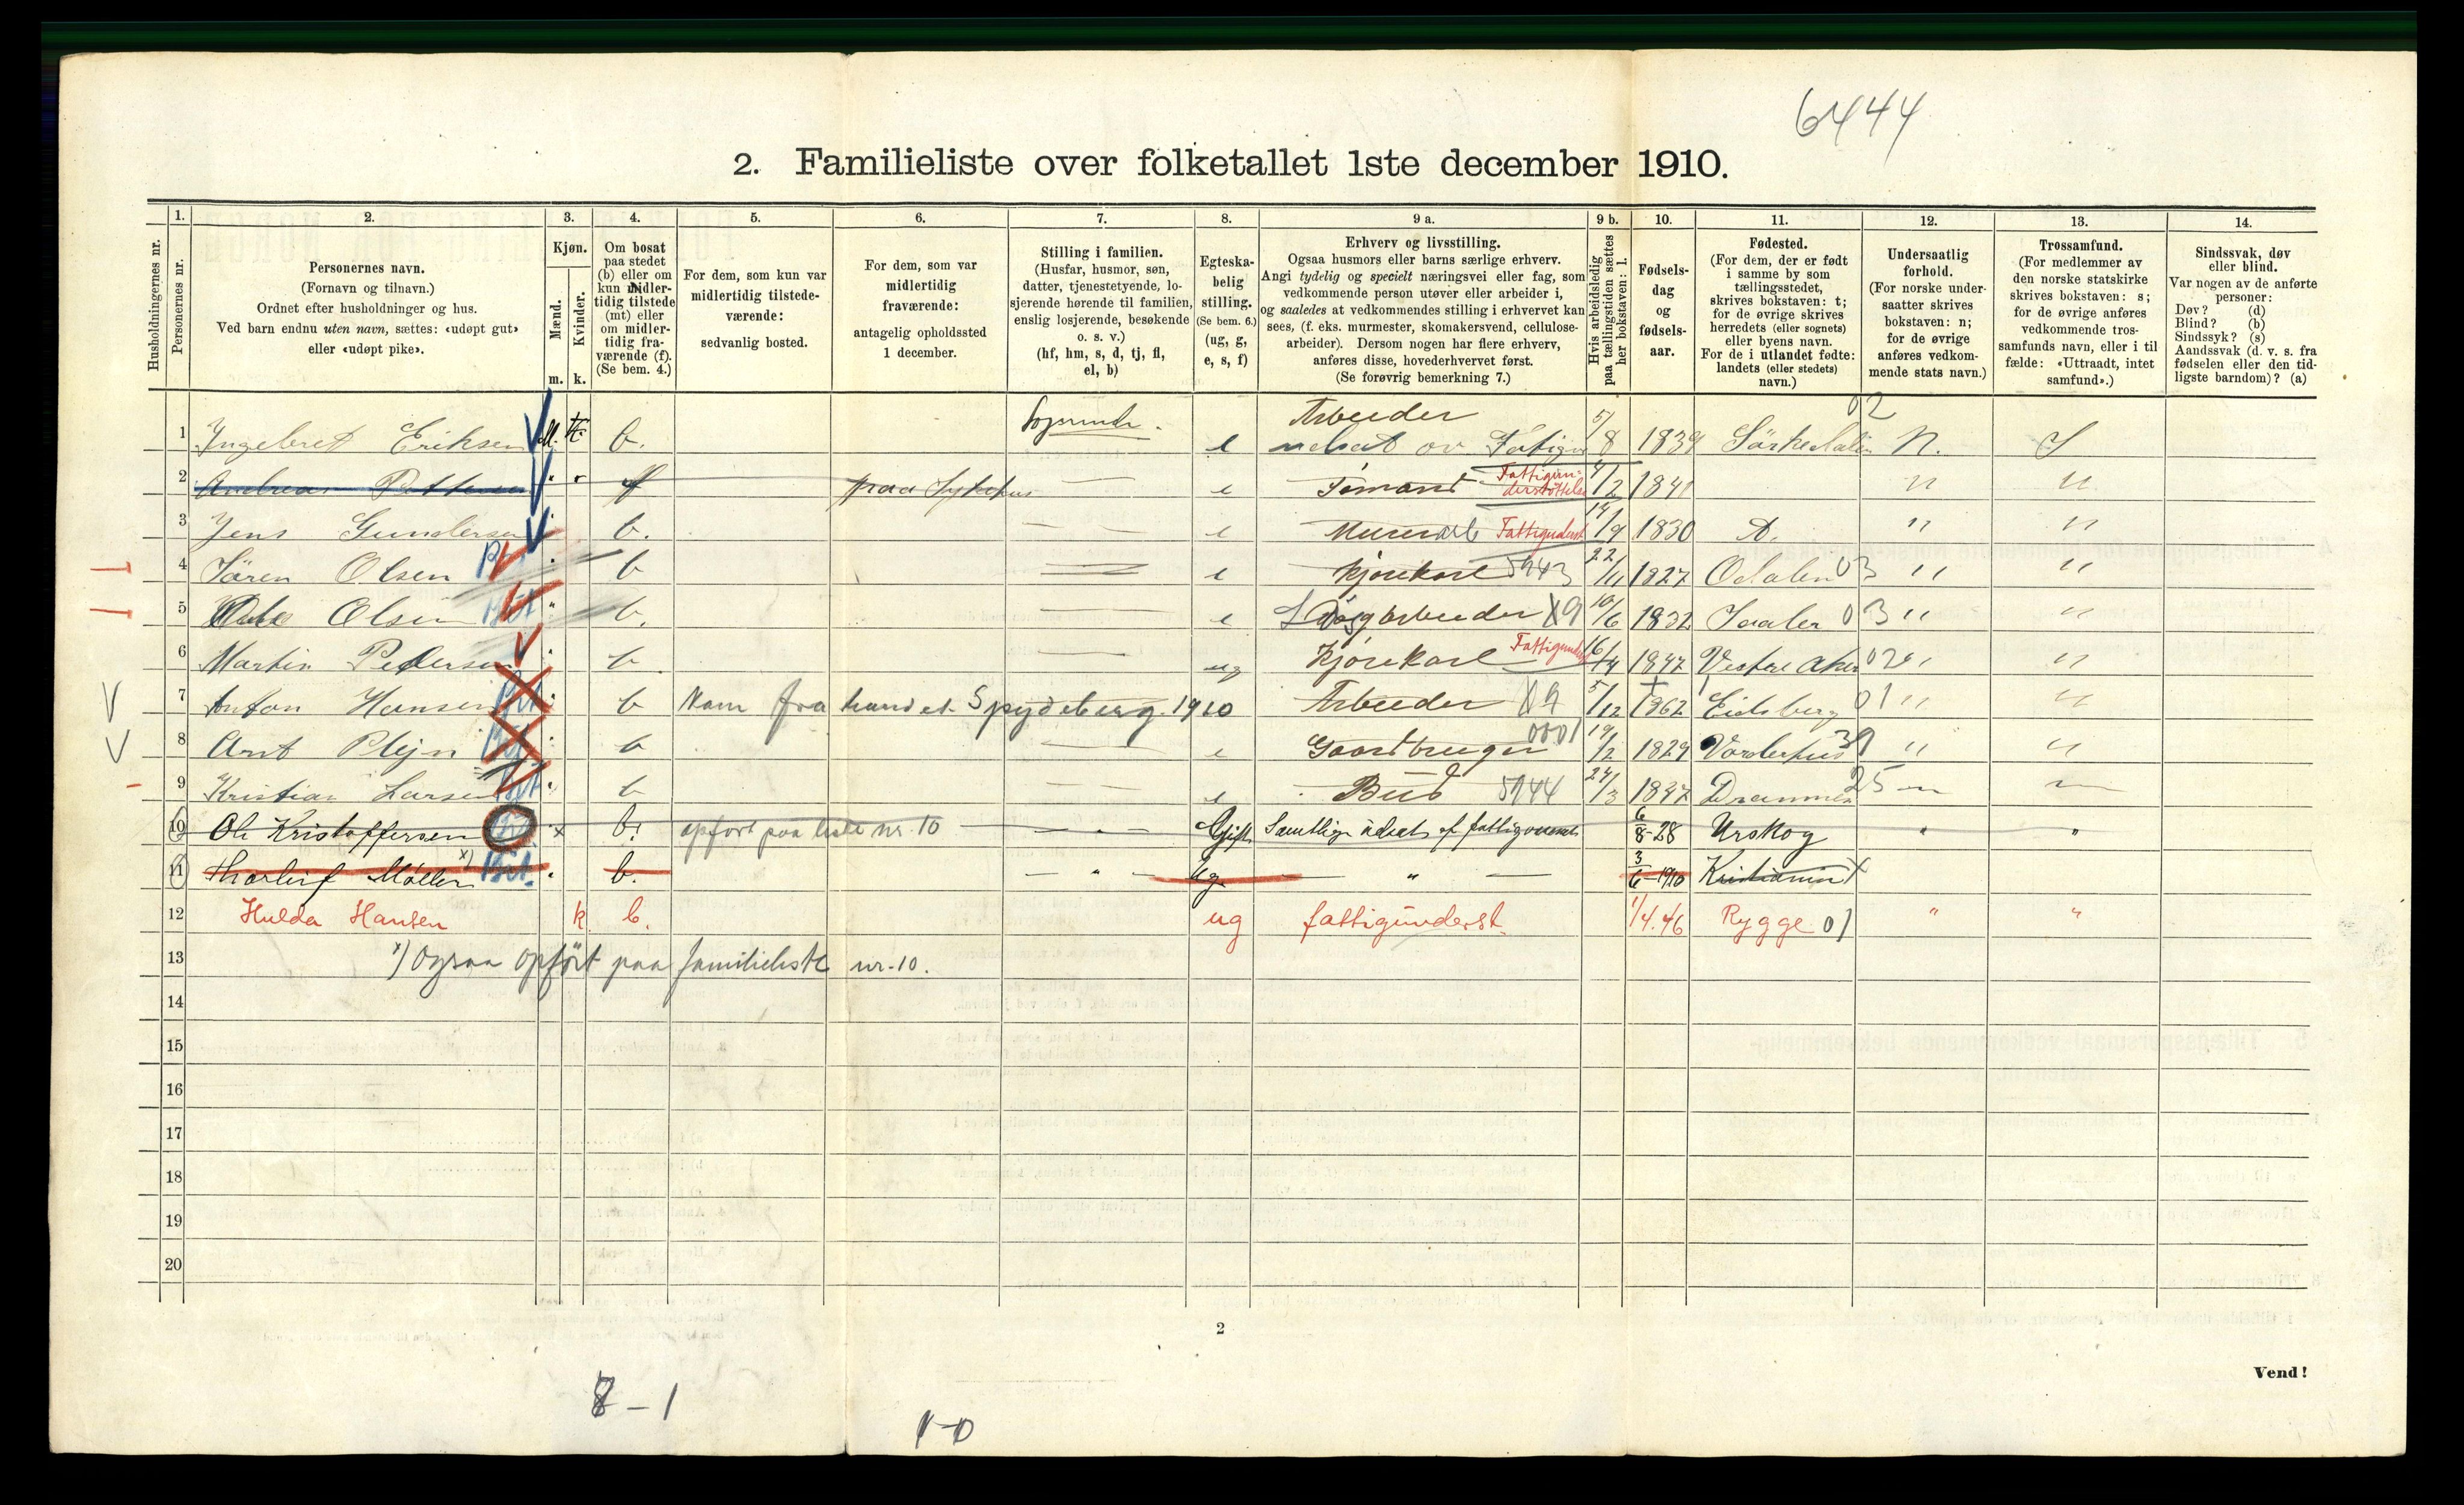 6444
2. Familieliste over folketallet 1ste december 1910.
Husholdningernes nr.
1. Personernes nr.
2. Personernes navn.
(Fornavn og tilnavn.)
Ordnet efter husholdninger og hus.
Ved barn endnu uten navn, sættes: «udøpt gut»
eller «udøpt pike».
3. Kjøn.
Mænd. Kvinder.
m. k.
4. Om bosat
paa stedet
(b) eller om
kun midler-
tidig tilstede
(mt) eller
om midler-
tidig fra-
værende (f).
(Se bem. 4.)
5. For dem, som kun var
midlertidig tilstede-
værende:
sedvanlig bosted.
6. For dem, som var
midlertidig
fraværende:
antagelig opholdssted
1 december.
7. Stilling i familien.
(Husfar, husmor, søn,
datter, tjenestetyende, lo-
sjerende hørende til familien,
enslig losjerende, besøkende
o. s. v.)
(hf, hm, s, d, tj, fl,
el, b)
8. Egteska-
belig
stilling.
(Se bem. 6.)
(ug, g,
e, s, f)
9 a. Erhverv og livsstilling.
Ogsaa husmors eller barns særlige erhverv.
Angi tydelig og specielt næringsvei eller fag, som
vedkommende person utøver eller arbeider i,
og saaledes at vedkommendes stilling i erhvervet kan
sees, (f. eks. murmester, skomakersvend, cellulose-
arbeider). Dersom nogen har flere erhverv,
anføres disse, hovederhvervet først.
(Se forøvrig bemerkning 7.)
9 b. Hvis arbeidsledig
paa tællingstiden sættes
her bokstaven: l.
10. Fødsels-
dag
og
fødsels-
aar.
11. Fødested.
(For dem, der er født
i samme by som
tællingsstedet,
skrives bokstaven: t;
for de øvrige skrives
herredets (eller sognets)
eller byens navn.
For de i utlandet fødte:
landets (eller stedets)
navn.)
12. Undersaatlig
forhold.
(For norske under-
saatter skrives
bokstaven: n;
for de øvrige
anføres vedkom-
mende stats navn.)
13. Trossamfund.
(For medlemmer av
den norske statskirke
skrives bokstaven: s;
for de øvrige anføres
vedkommende tros-
samfunds navn, eller i til-
fælde: «Uttraadt, intet
samfund».)
14. Sindssvak, døv
eller blind.
Var nogen av de anførte
personer:
Døv? (d)
Blind? (b)
Sindssyk? (s)
Aandssvak (d. v. s. fra
fødselen eller den tid-
ligste barndom)? (a)
Arbeider 02
1 Ingebret Eriksen M. b. e 5/8 1839 Sörkedalen N. S
2 Andreas f paa Sykehus e Sömand Fattigun-
derstöttelse 4/2 1841 " "
3 Jens Gundersen b. e Fattigunderst 14/9 1830 " "
4 Sören Olsen b e Kjörekarl 5943 22/11 1827 Odalen 03 " "
5 Olsen b. e 10/6 1832 03 " "
6 Martin Pedersen b. ug Kjörekarl Fattigunderst 16/4 1847 Vestre Aker 02 " "
7 Anton Hansen b Kom fra landet Spydeberg. 1910 Arbeider X9 5/12 1862 Eidsberg 01 " "
8 Arnt Plejn b e Gaardbruger 0001 19/2 1829 " "
9 Kristian Larsen b Bud 5944 24/3 1837 Drammen 25
10 Ole Kristoffersen x b. opfört paa liste nr. 10 — " — Gift Samtlige 6/8-28 Urskog " "
11 Thorleif Möller x) b. — " — Ug — " — 3/6-1910 Kristiania
12 Hulda Hansen k b. ug fattigunderst. 1/4.46 Rygge 01 " "
13 x) Ogsaa opfört paa familieliste nr. 10.
14
15
16
17
18
19
20
2
Vend!
8 – 1
1 – 0